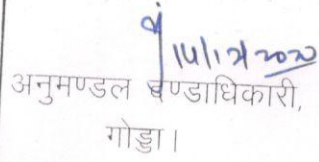 14/12/2020
अनुमण्डल दण्डाधिकारी,
गोड्डा।